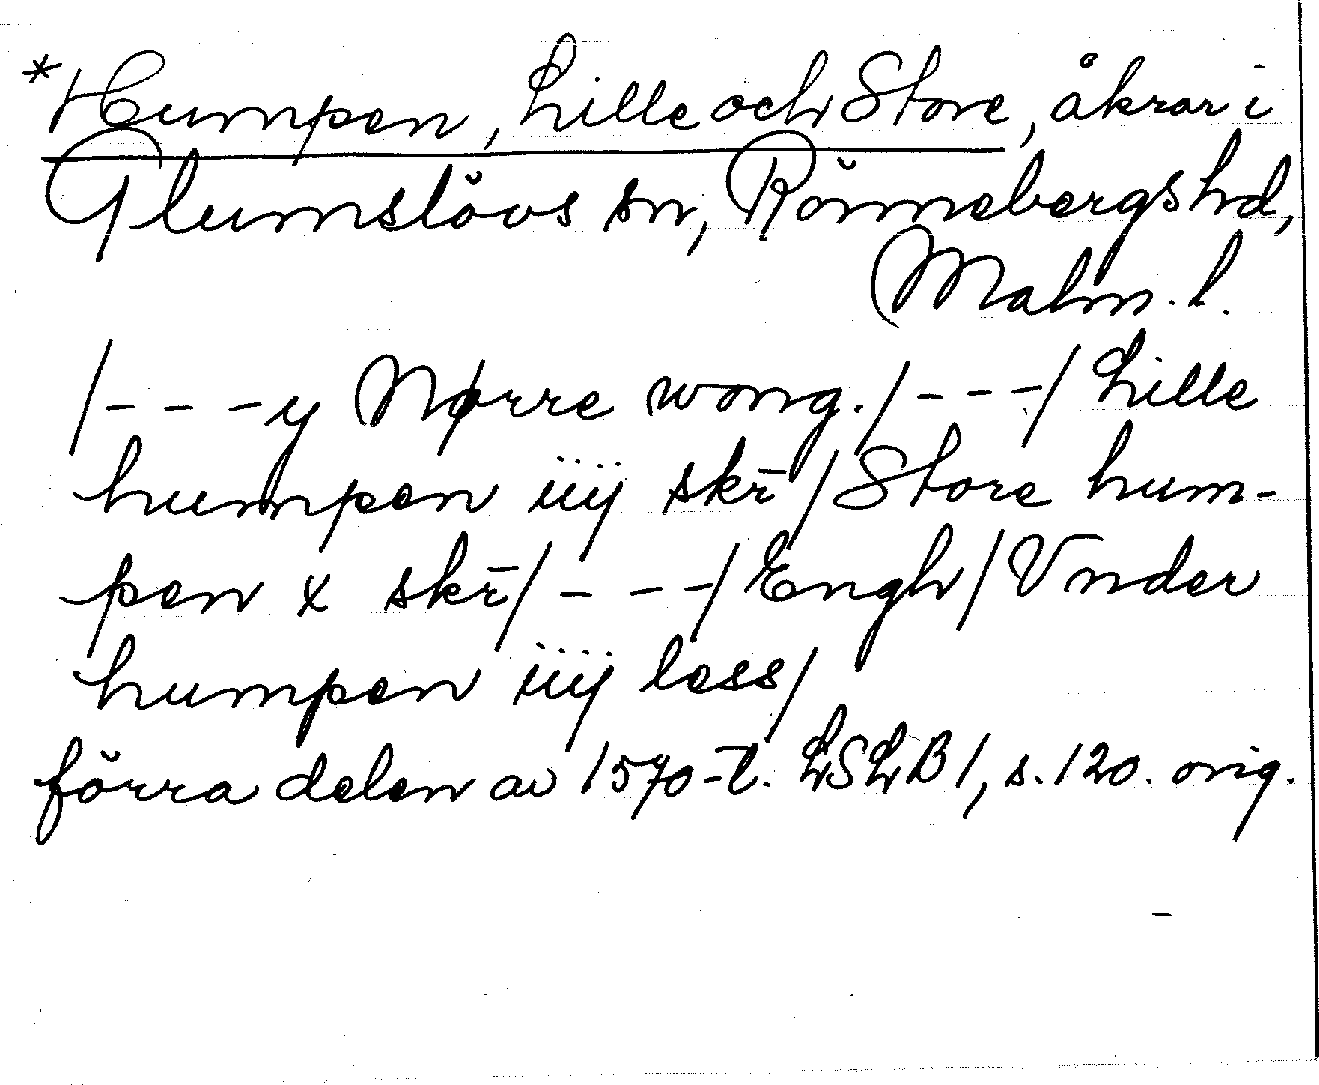 *Humpen, Lille och Store, åkrar i
Glumslövs sn, Rönnebergs hd,
Malm. l.
/- - -y Nørre wong./- - -/ Lille
humpen iiij skr̄/Store hum-
pen x skr̄/- - -/Engh/Vnder
humpen iiij less/
förra delen av 1570-t. LSLB 1, s. 120. orig.